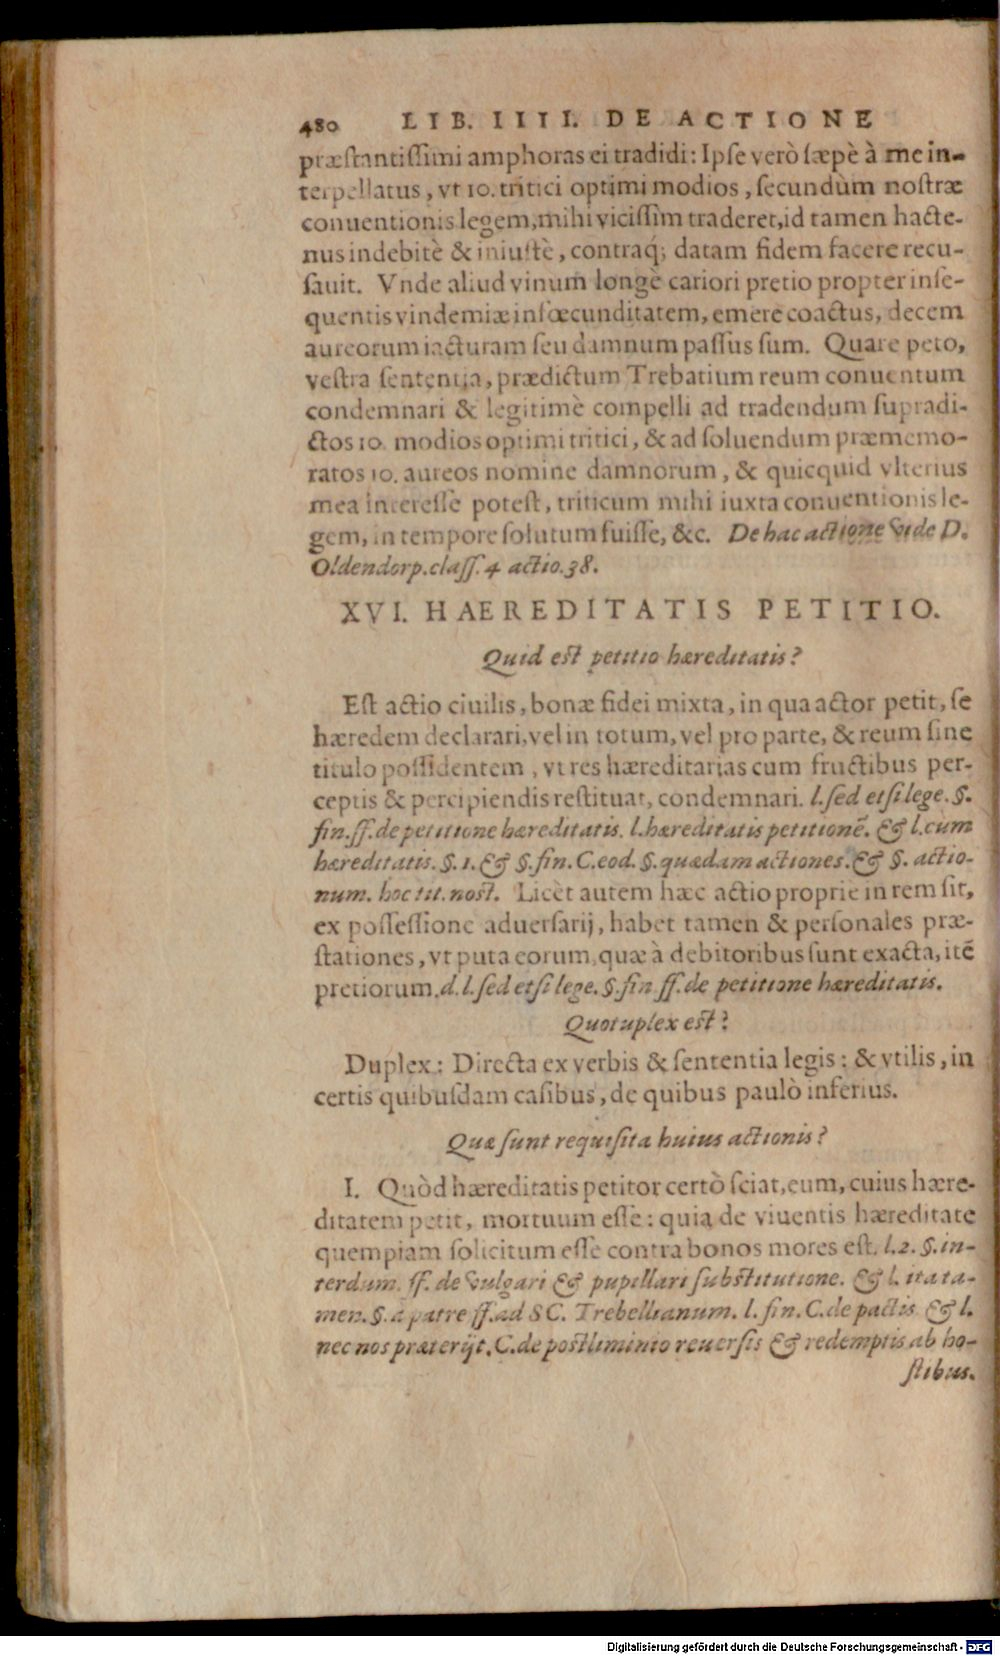 480 LIB. IIII. DE ACTIONE
præstantissimi amphoras ei tradidi: Ipse verò sæpè à me in-
terpellatus, vt 10. tritici optimi modios, secundùm nostræ
conuentionis legem, mihi vicissim traderet, id tamen hacte-
nus indebitè & iniustè, contraq; datam fidem facere recu-
sauit. Vnde aliud vinum longè cariori pretio propter inse-
quentis vindemiæ infœcunditatem, emere coactus, decem
aureorum iacturam seu damnum passus sum. Quare peto,
vestra sententia, prædictum Trebatium reum conuentum
condemnari & legitimè compelli ad tradendum supradi-
ctos 10. modios optimi tritici, & ad soluendum præmemo-
ratos 10. aureos nomine damnorum, & quicquid vlterius
mea interesse potest, triticum mihi iuxta conuentionis le-
gem, in tempore solutum fuisse, &c. De hac actione vide D.
Oldendorp. class. 4 actio. 38.
XVI. HAEREDITATIS PETITIO.
Quid est petitio hæreditatis?
Est actio ciuilis, bonæ fidei mixta, in qua actor petit, se
hæredem declarari, vel in totum, vel pro parte, & reum sine
titulo possidentem, vt res hæreditarias cum fructibus per-
ceptis & percipiendis restituat, condemnari. l. sed et si lege. §.
fin. ff. de petitione hæreditatis. l. hæreditatis petitionē. & l. cùm
hæreditatis. §. 1. & §. fin. C. eod. §. quædam actiones. & §. actio-
num. hoc tit. nost. Licèt autem hæc actio propriè in rem sit,
ex possessione aduersarij, habet tamen & personales præ-
stationes, vt puta eorum, quæ à debitoribus sunt exacta, itē
pretiorum. d. l. sed et si lege. §. fin. ff. de petitione hæreditatis.
Quotuplex est?
Duplex: Directa ex verbis & sententia legis: & vtilis, in
certis quibusdam casibus, de quibus paulò inferius.
Quæ sunt requisita huius actionis?
I. Quòd hæreditatis petitor certò sciat, eum, cuius hære-
ditatem petit, mortuum esse: quia de viuentis hæreditate
quempiam solicitum esse contra bonos mores est. l. 2. §. in-
terdum. ff. de vulgari & pupillari substitutione. & l. ita ta-
men. §. à patre ff. ad SC. Trebellianum. l. fin. C. de pactis & l.
nec nos præterijt. C. de postliminio reuersis & redemptis ab ho-
stibus.
Digitalisierung gefördert durch die Deutsche Forschungsgemeinschaft - DFG